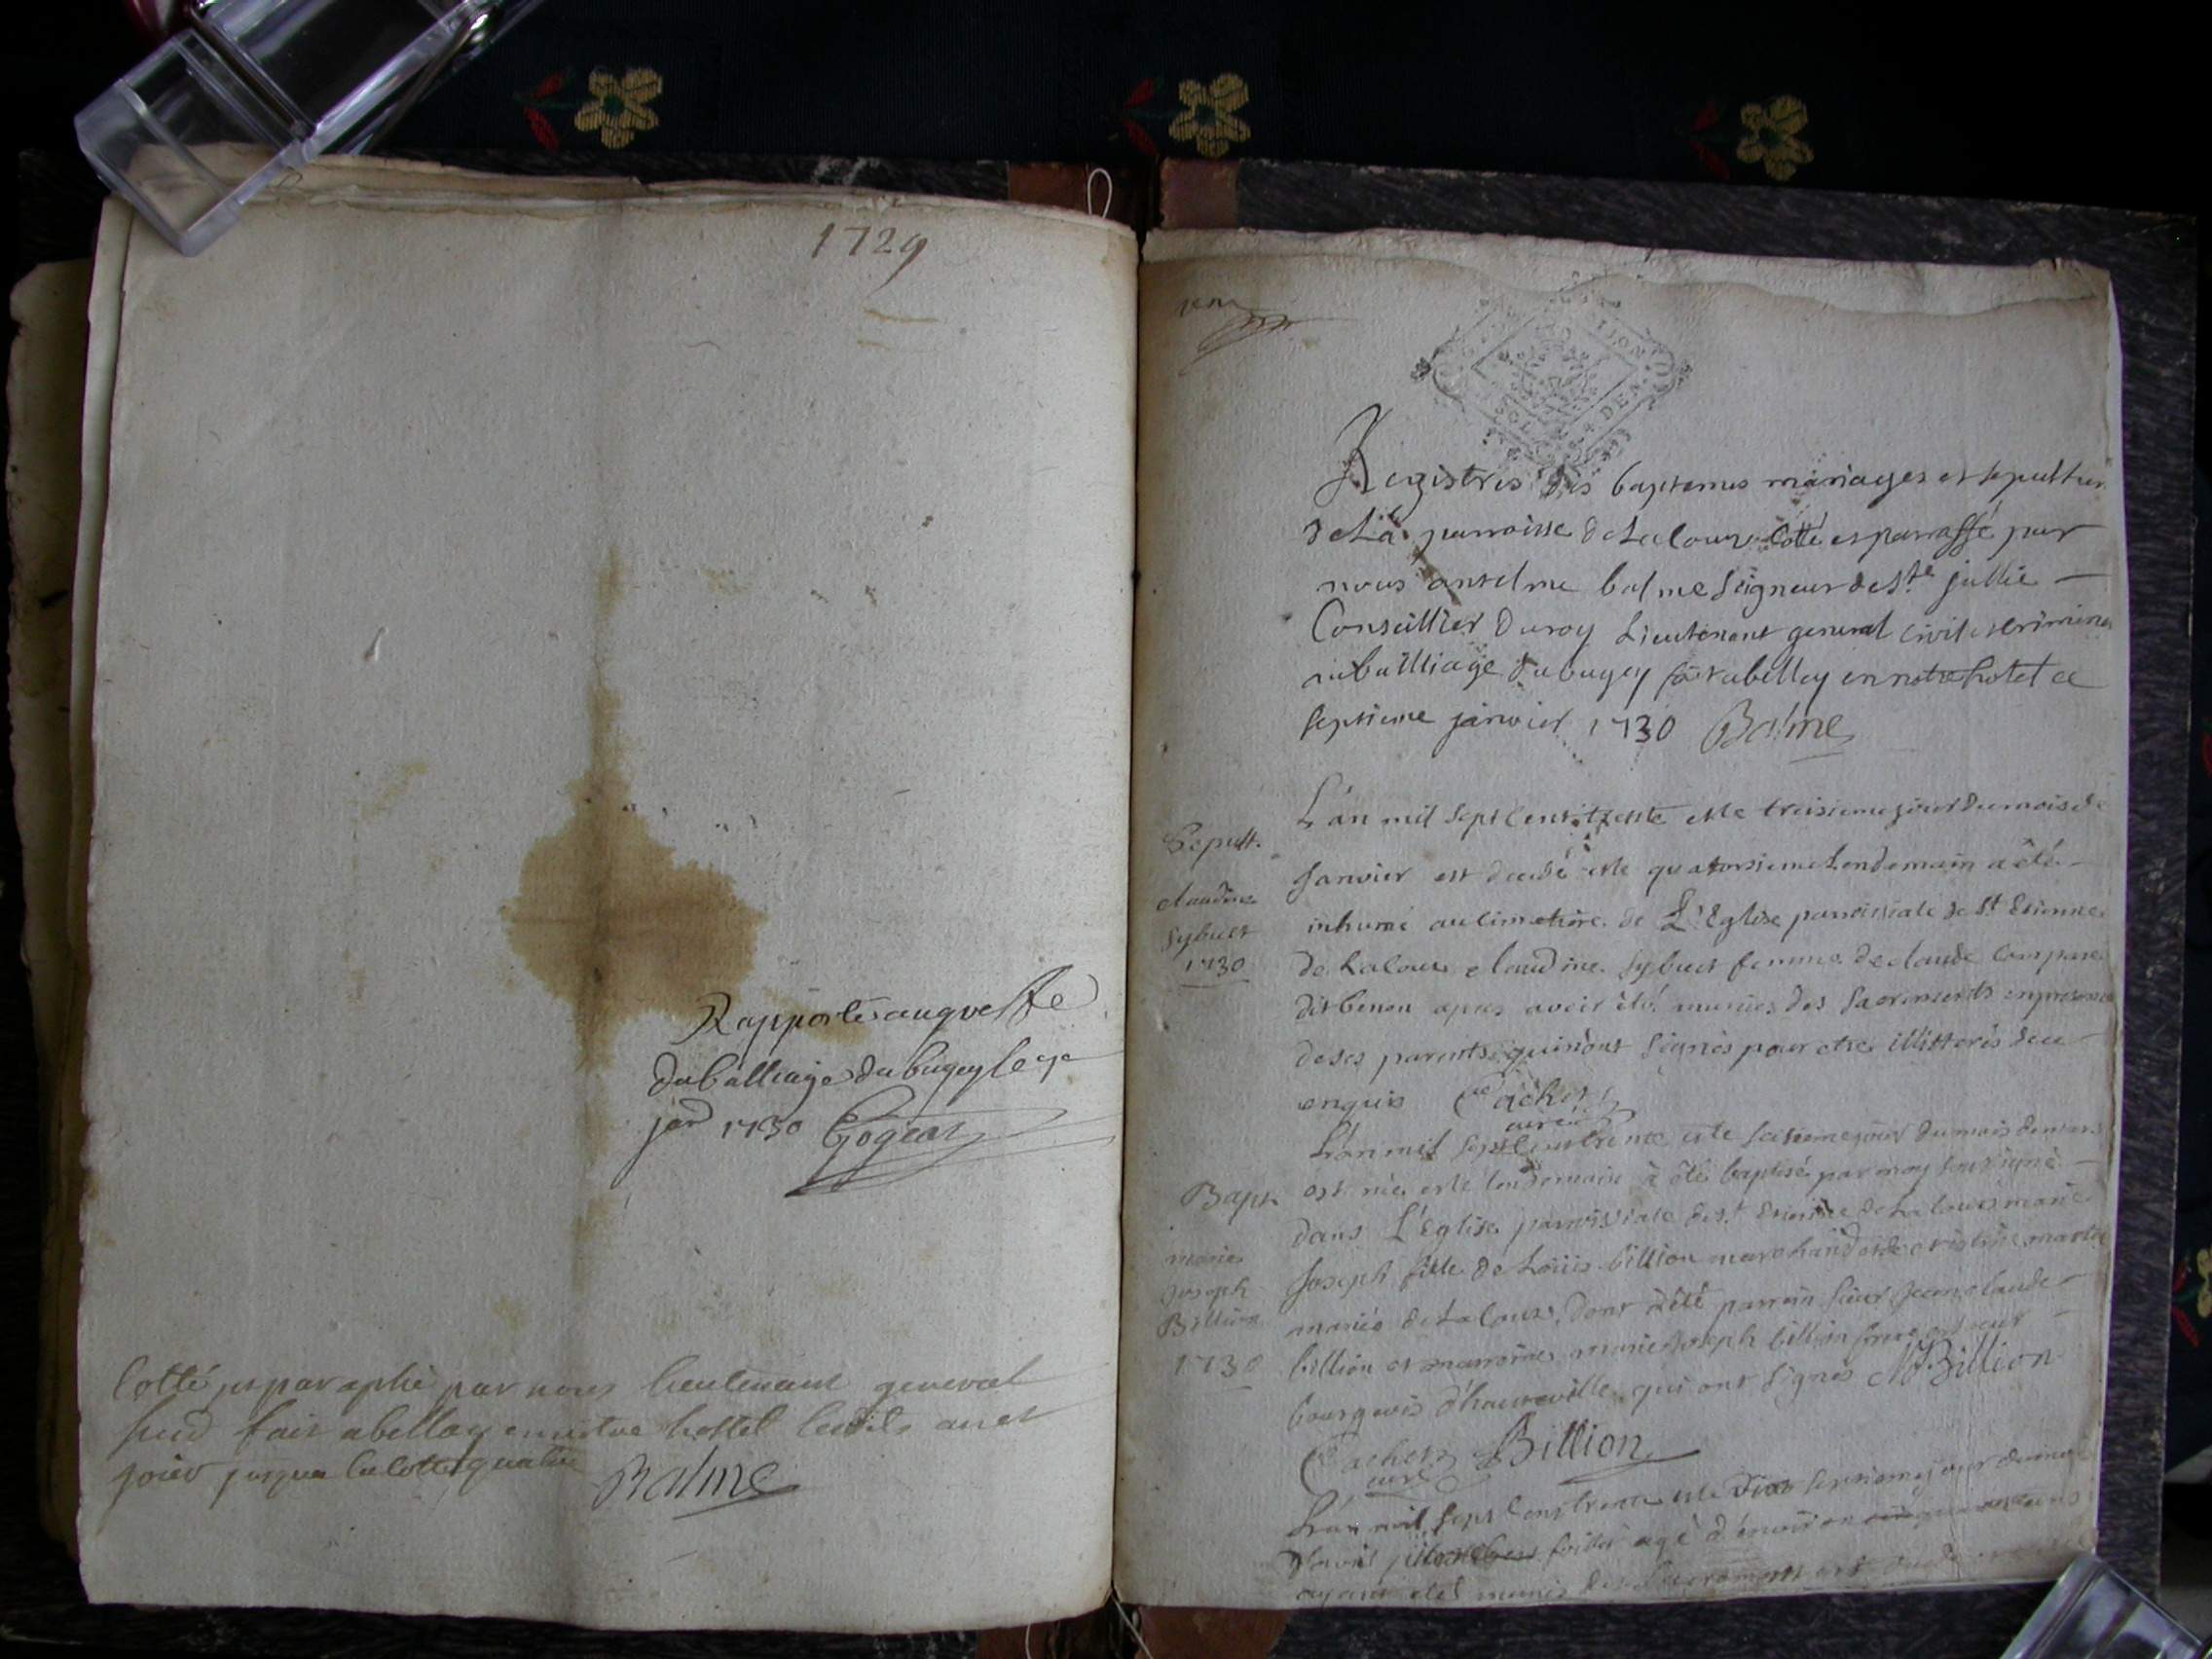 1729
Rapporté au greffe
du balliage du bugey le 7e
jer 1730 Gogeat
Cotté et paraphé par nous lieutenant general
susd fait a belley en nostre hostel lesdits an et
jour jusqua la cotte quatre Balme
GENERALITE DIJON
SOL 4 DEN
Registres des baptemes mariages et sepultures
de La parroisse de Lalouz Cotté et parraffé par
nous anselme balme seigneur de Ste jullie
Conseillier du roy Lieutenant general civil et criminel
au bailliage du bugey fait a belley en notre hotel ce
septieme janvier 1730 Balme
Sepult.
claudine
Sybuet
1730
L'an mil sept cent trente et le treisieme jour du mois de
Janvier est decedé et le quatorsieme Lendemain a été
inhumé au cimetiere de L'Eglise parroissiale de St Estienne
de Lalouz claudine Sybuet femme de claude Compare
dit benon apres avoir été munies des sacrements en presence
de ses parents qui n'ont signés pour etre illitterés de ce
enquis Cachet
curé
Bapt.
marie
Joseph
Billion
1730
L'an mil sept cent trente et le seisieme jour du mois de mars
est née et le lendemain à été baptisé par moy soussigné
dans L'Eglise parroissiale de St Estienne de Lalouz marie
Joseph fille de Loüis billion marchand et de cristine martin
mariés de Lalouz, dont a été parrain sieur Jean claude
billion et marraine marie Joseph billion frere et soeur
bourgeois d'hauteville qui ont signés MJ Billion
Cachet Billion
curé
L'an mil sept cent trente et le dix septieme jour du mois
d'avril agé d'environ cinquante ans
ayant été munis des Sacrements est decedé